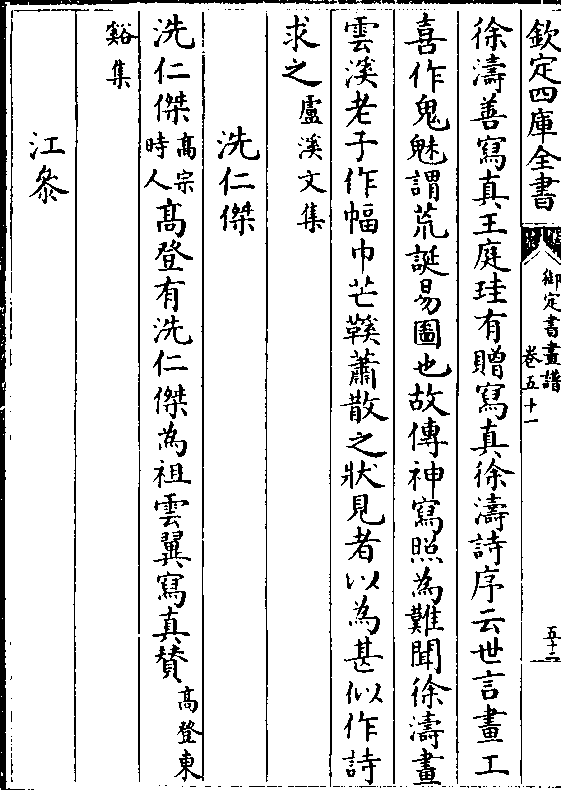 欽定四庫全書
御定書畫譜
卷五十一
五十二
徐濤善寫真王庭珪有贈寫真徐濤詩序云世言畫工
喜作鬼魅謂荒誕易圖也故傳神寫照為難聞徐濤畫
雲溪老子作幅巾芒鞵蕭散之狀見者以為甚似作詩
求之盧溪文集
冼仁傑
冼仁傑高宗時人高登有冼仁傑為祖雲翼寫真賛高登東
谿集
江叅